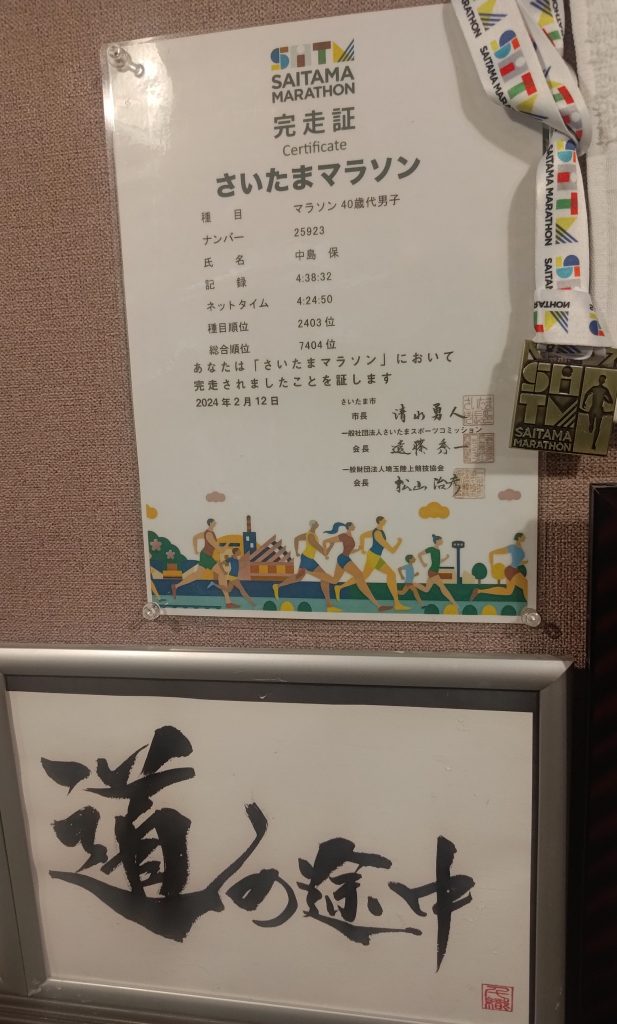 SHTM
SAITAMA
MARATHON
完走証
Certificate
さいたまマラソン
種 目 マラソン 40歳代男子
ナンバー 25923
氏 名 中島 保
記 録 4:38:32
ネットタイム 4:24:50
種目順位 2403 位
総合順位 7404 位
あなたは「さいたまマラソン」において
完走されましたことを証します
2024 年 2 月 12 日
さいたま市
市長 清水勇人
一般社団法人さいたまスポーツコミッション
会長 遠藤秀一
一般財団法人埼玉陸上競技協会
会長 松山治彦
SAITAMA MARATHON
SAITAMA MARATHON
SAITAMA
MARATHON
道の途中